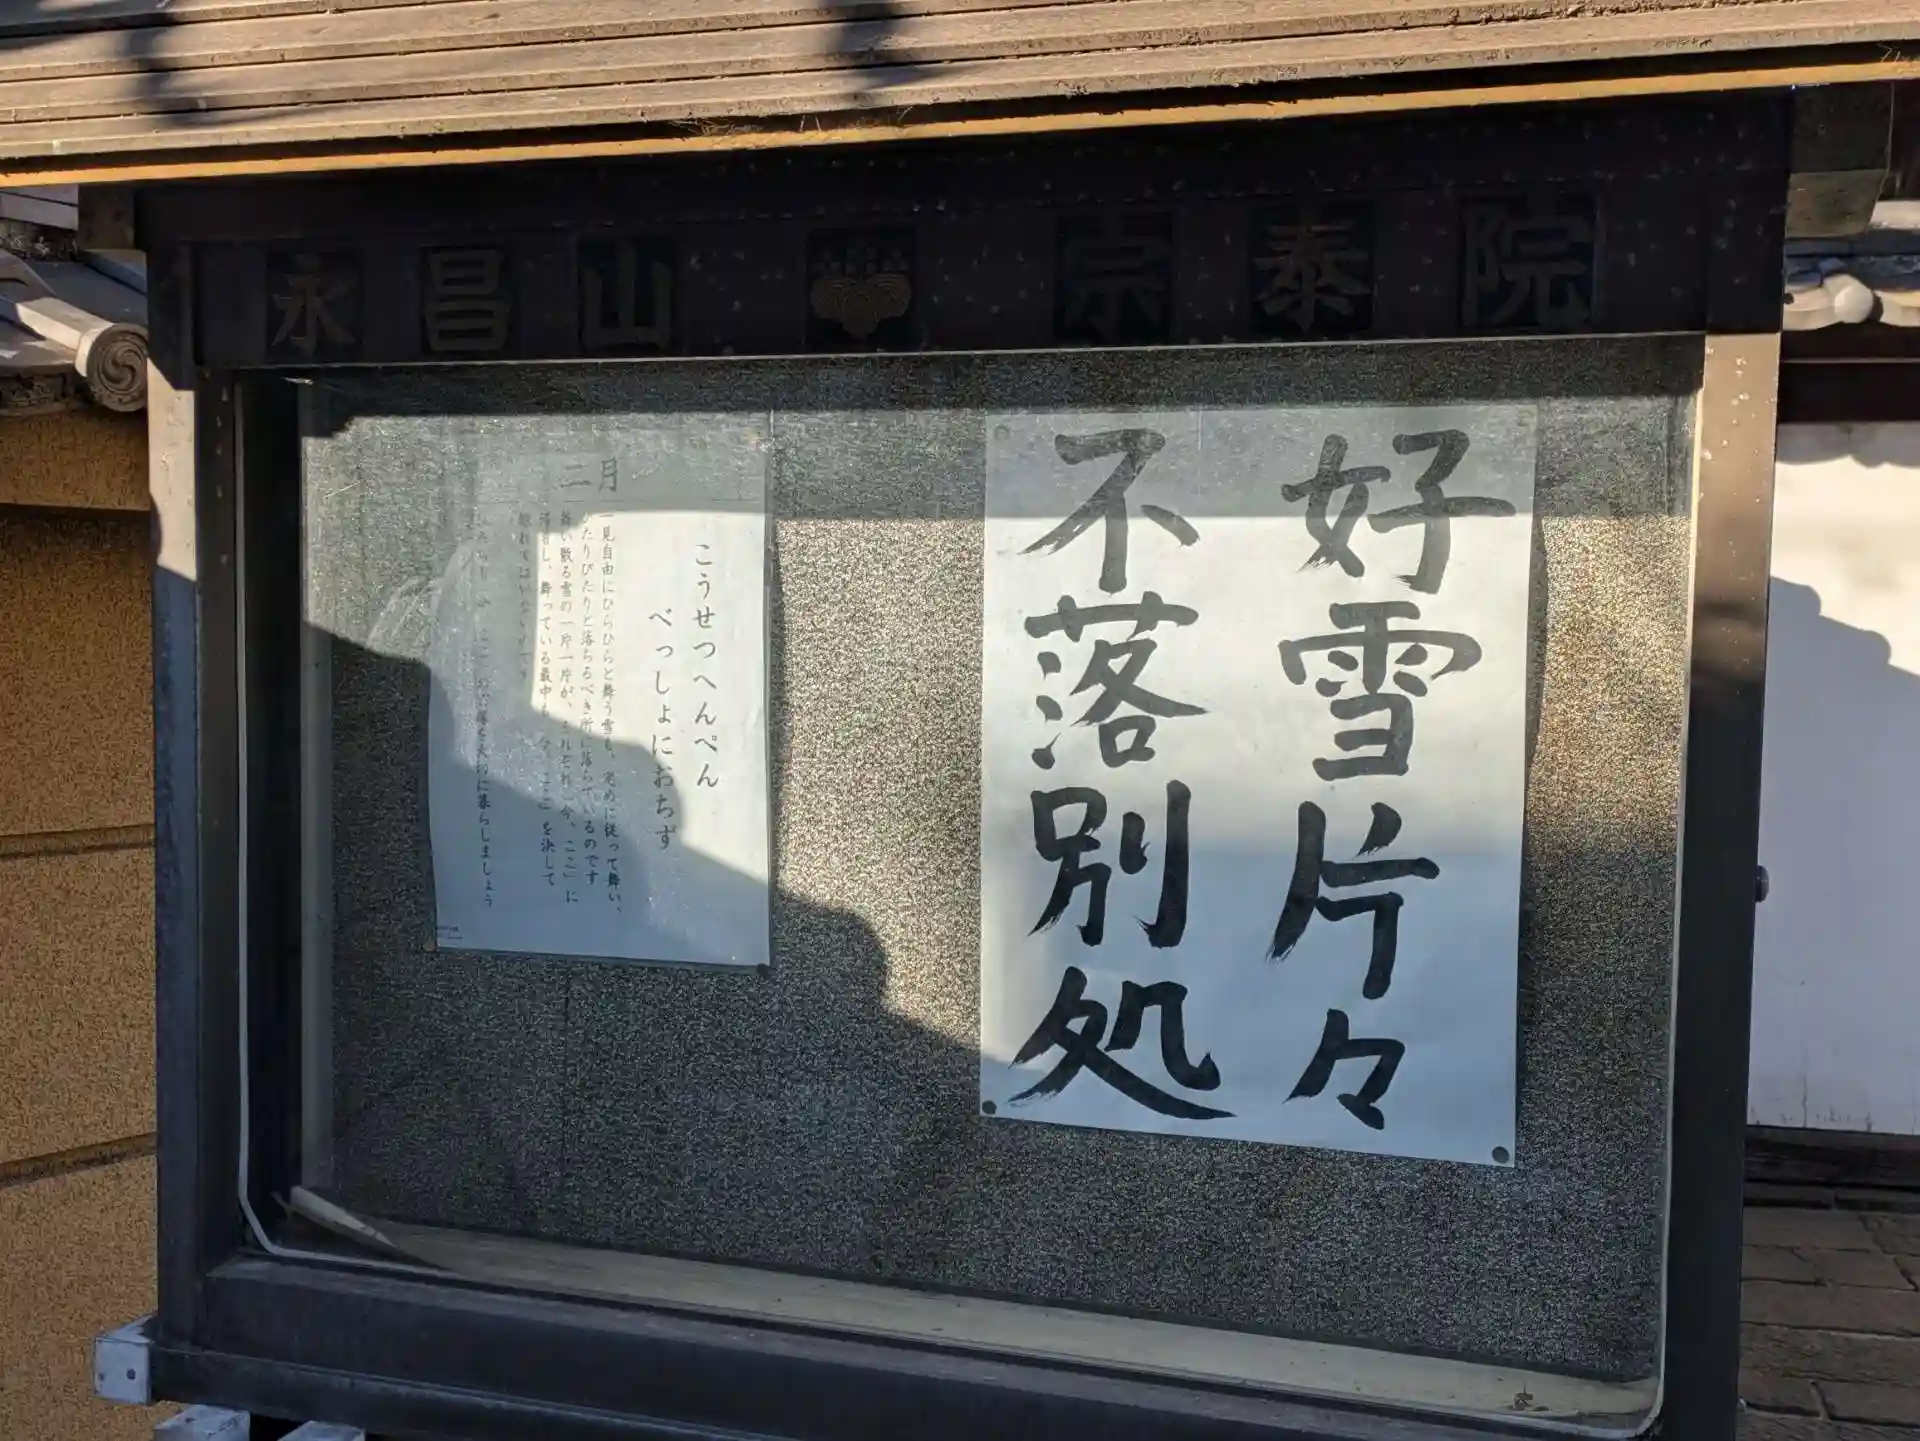 永昌山 宗泰院
好雪片々
不落別処
二月
こうせつへんぺん
べっしょにおちず
一見自由にひらひらと舞う雪も、定めに従って舞い、
ぴたりぴたりと落ちるべき所に落ちているのです
舞い散る雪の一片一片が、それぞれ「今、ここ」に
落着し、舞っている最中も「今、ここ」を決して
離れてはいないのです
を大切に暮らしましょう